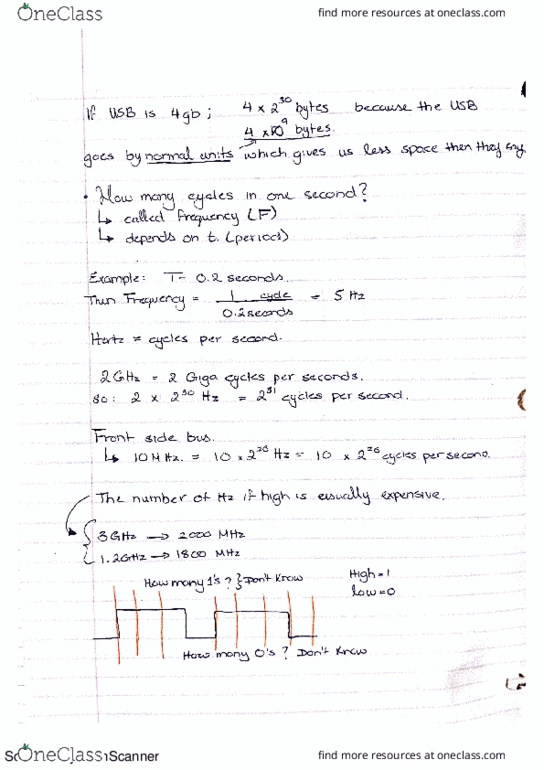 OneClass find more resources at oneclass.com
If USB is 4gb; 4 x 2^30 bytes because the USB
4 x 10^9 bytes.
goes by normal units which gives us less space then they say
• How many cycles in one second?
↳ called frequency (F)
↳ depends on t. (period)
Example: T= 0.2 seconds.
Then Frequency = 1 cycle / 0.2 seconds = 5 Hz
Hertz = cycles per second.
2GHz = 2 Giga cycles per seconds.
so: 2 x 2^30 Hz = 2^31 cycles per second.
Front side bus.
↳ 10 MHz. = 10 x 2^20 Hz = 10 x 2^20 cycles per second.
The number of Hz if high is usually expensive.
3GHz → 2000 MHz
1.2GHz → 1800 MHz
How many 1's? } Don't Know High = 1
low = 0
How many 0's? Don't Know
OneClass Scanner find more resources at oneclass.com